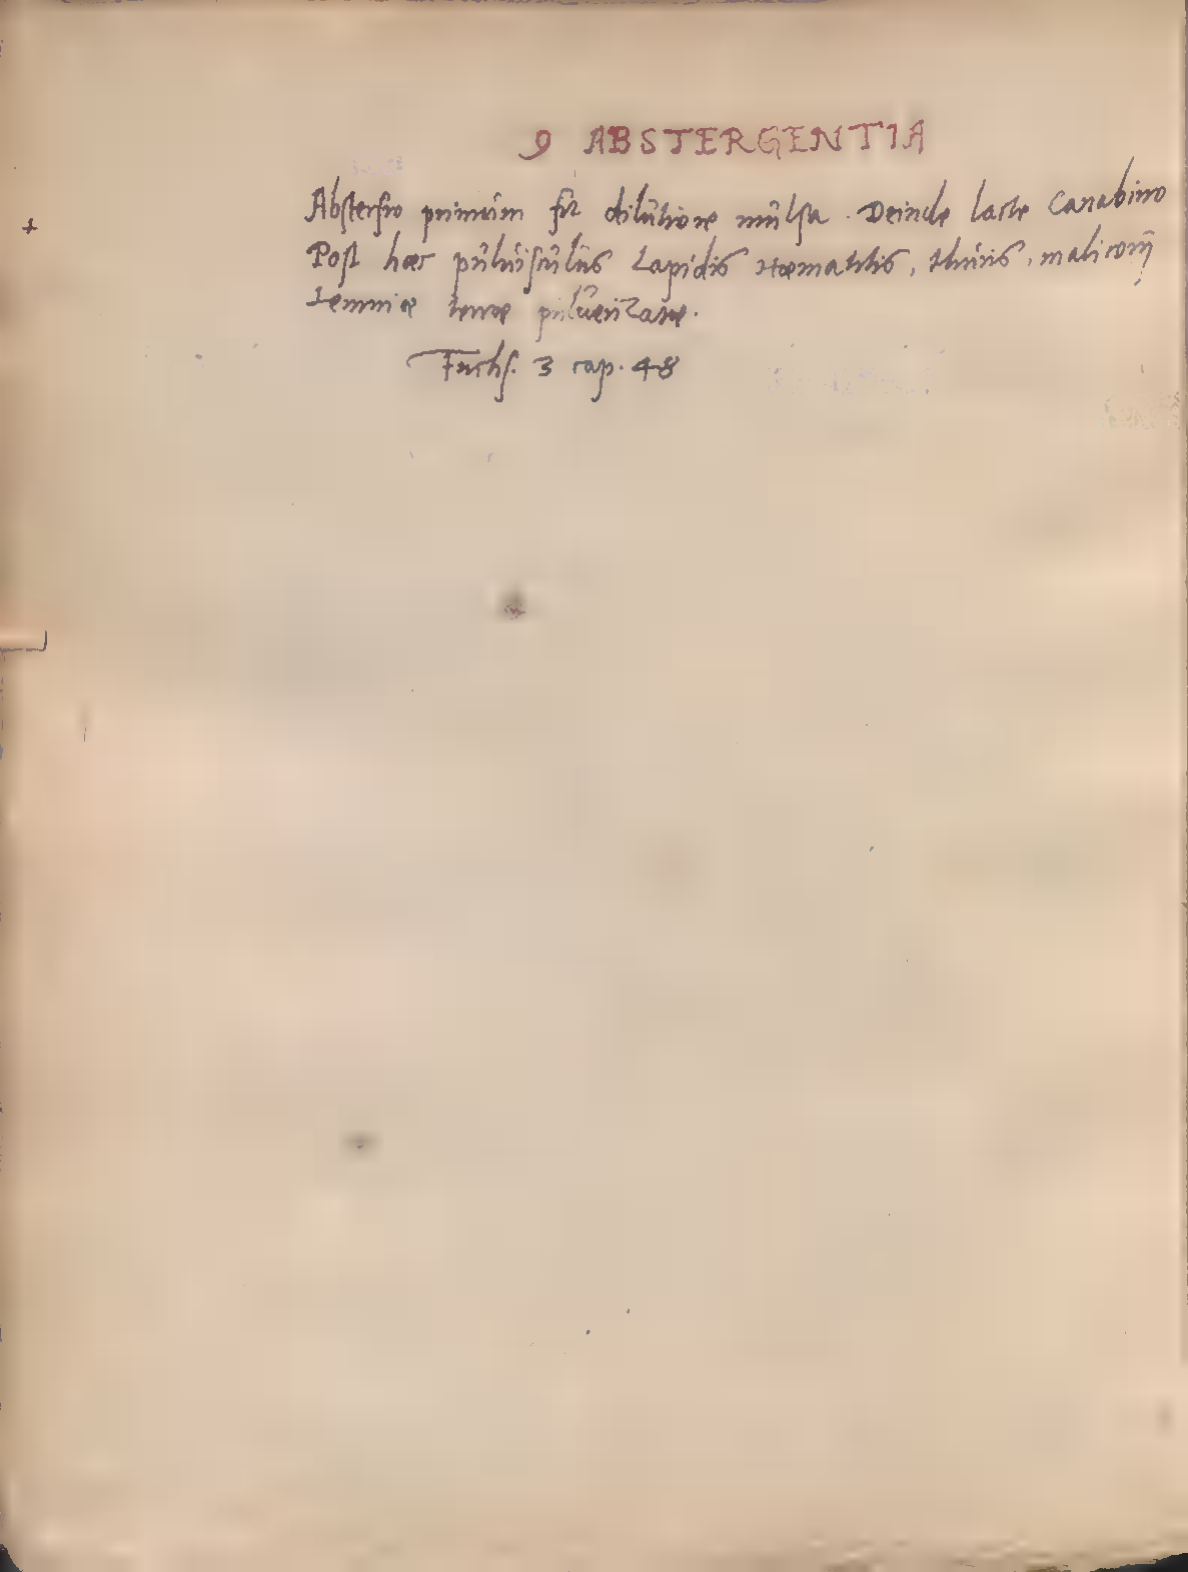 9 ABSTERGENTIA
Abstersio primùm fit dilutione mulsa. Deinde lacte Canabino
+
Post haec pulvisculus Lapidis Haematitis, thuris, malicorij
Lemniae terrae pulverizatae.
Fuchs. 3 cap. 48